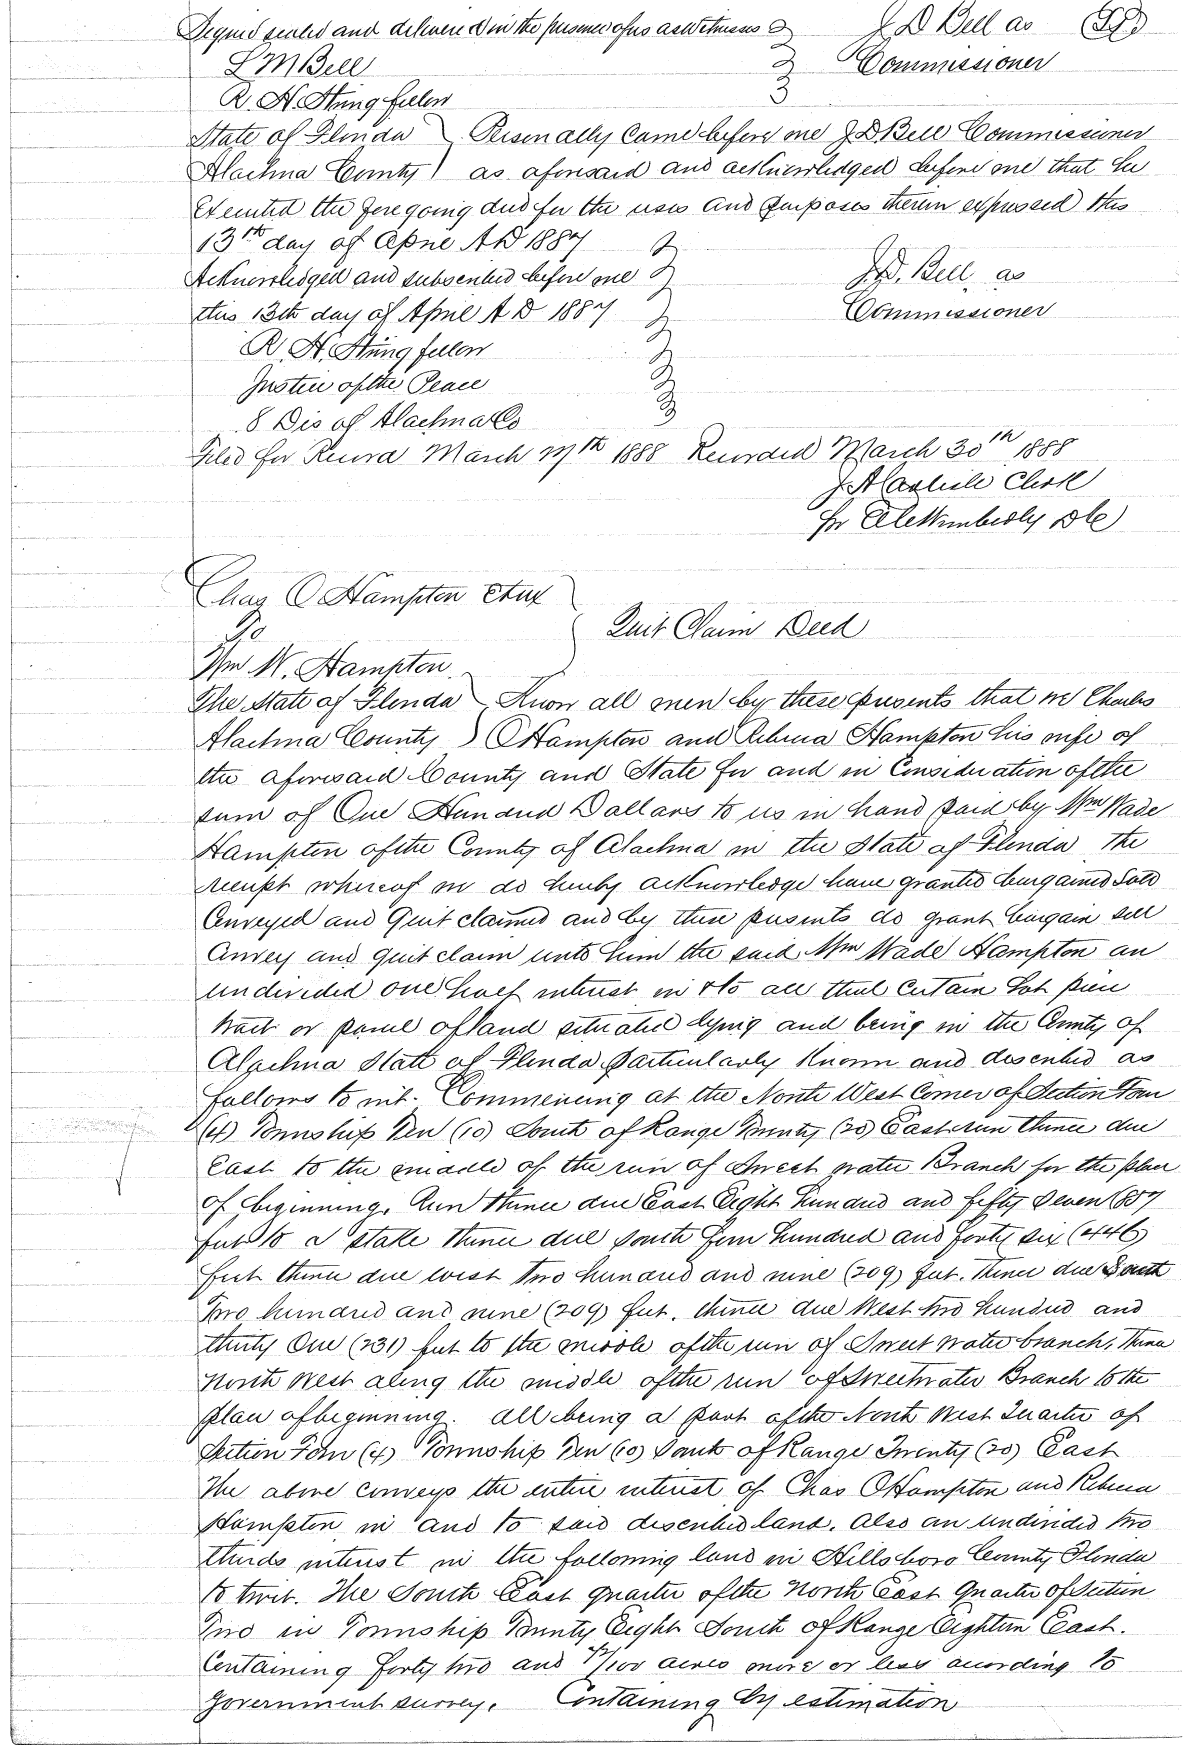 Signed sealed and delivered in the presence of us as witnesses J D Bell as
L M Bell Commissioner
R. H. Stringfellow
State of Florida Personally came before me J D Bell Commissioner
Alachua County as aforesaid and acknowledged before me that he
Executed the foregoing deed for the uses and purposes therein expressed this
13th day of April A D 1887
Acknowledged and subscribed before me J. D. Bell, as
this 13th day of April A D 1887 Commissioner
R. H. Stringfellow
Justice of the Peace
8 Dis of Alachua Co
Filed for Record March 1888 Recorded March 30th 1888
J A Carlisle Clerk
for Wimberly
Chas O Hampton et ux
To Quit Claim Deed
Wm W. Hampton.
The State of Florida Know all men by these presents that we Charles
Alachua County O Hampton and Rebecca Hampton his wife of
the aforesaid County and State for and in Consideration of the
sum of One Hundred Dollars to us in hand paid by Wm Wade
Hampton of the County of Alachua in the State of Florida the
receipt whereof we do hereby acknowledge have granted bargained Sold
Conveyed and Quit claimed and by these presents do grant bargain sell
Convey and quit claim unto him the said Wm Wade Hampton an
undivided one half interest in & to all that Certain Lot piece
tract or parcel of land situated lying and being in the County of
Alachua State of Florida particularly Known and described as
follows to wit. Commencing at the North West Corner of Section Four
(4) Township Ten (10) South of Range Twenty (20) East run thence due
East to the middle of the run of Sweet water Branch for the place
of beginning. Run thence due East Eight hundred and fifty Seven (857
feet to a stake thence due South four hundred and forty six (446)
feet thence due west two hundred and nine (209) feet. thence due South
Two hundred and nine (209) feet. thence due West two hundred and
thirty One (231) feet to the middle of the run of Sweet water branch, thence
North West along the middle of the run of Sweetwater Branch to the
place of beginning. all being a part of the North West Quarter of
Section Four (4) Township Ten (10) South of Range Twenty (20) East
The above conveys the entire interest of Chas O Hampton and Rebecca
Hampton in and to said described land. Also an undivided two
thirds interest in the following land in Hillsboro County Florida
to twit. The South East quarter of the North East Quarter of Section
Two in Township Twenty Eight South of Range Eighteen East.
Containing forty two and /100 acres more or less according to
government survey. Containing by estimation